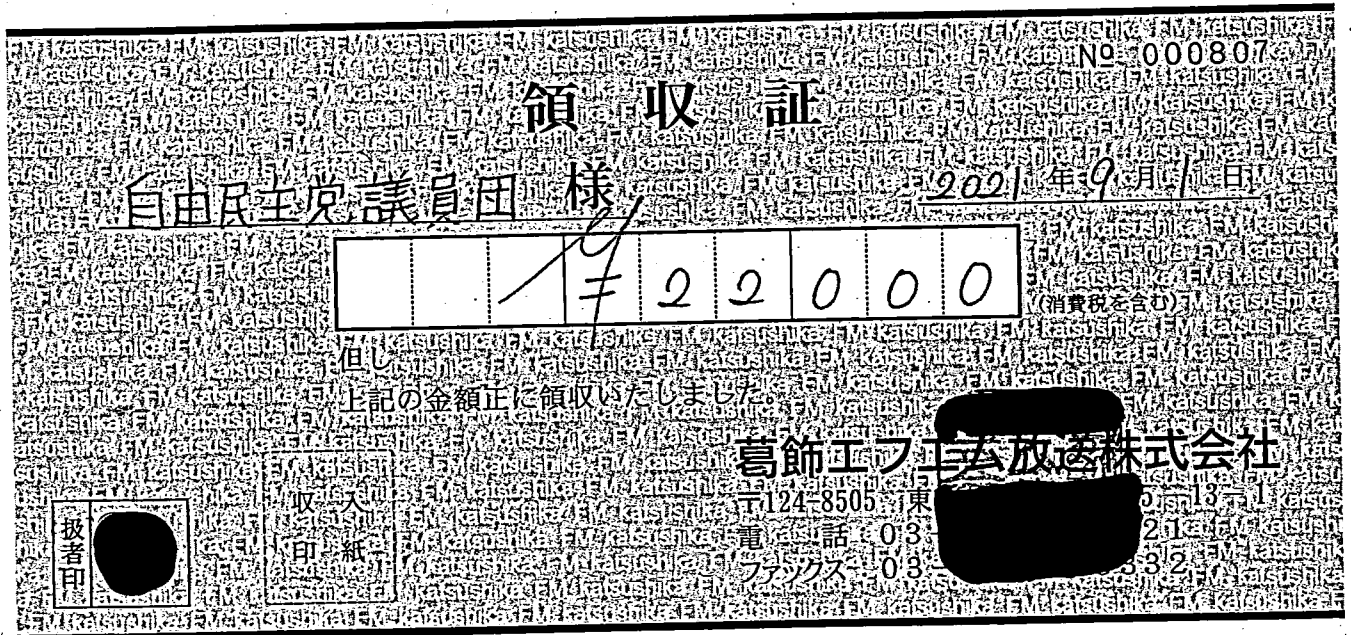 № 000807
領収証
自由民主党議員団 様
2021年9月1日
¥22000
(消費税を含む)
但し
上記の金額正に領収いたしました。
葛飾エフエム放送株式会社
〒124-8505 東 5-13-1
電話 03- 21
ファックス 03- 332
収入
印紙
扱者印